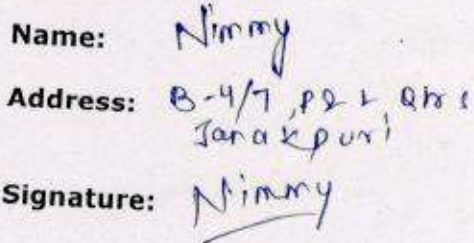 Name: Nimmy
Address: B-4/7, P&L Qtrs
Janakpuri
Signature: Nimmy